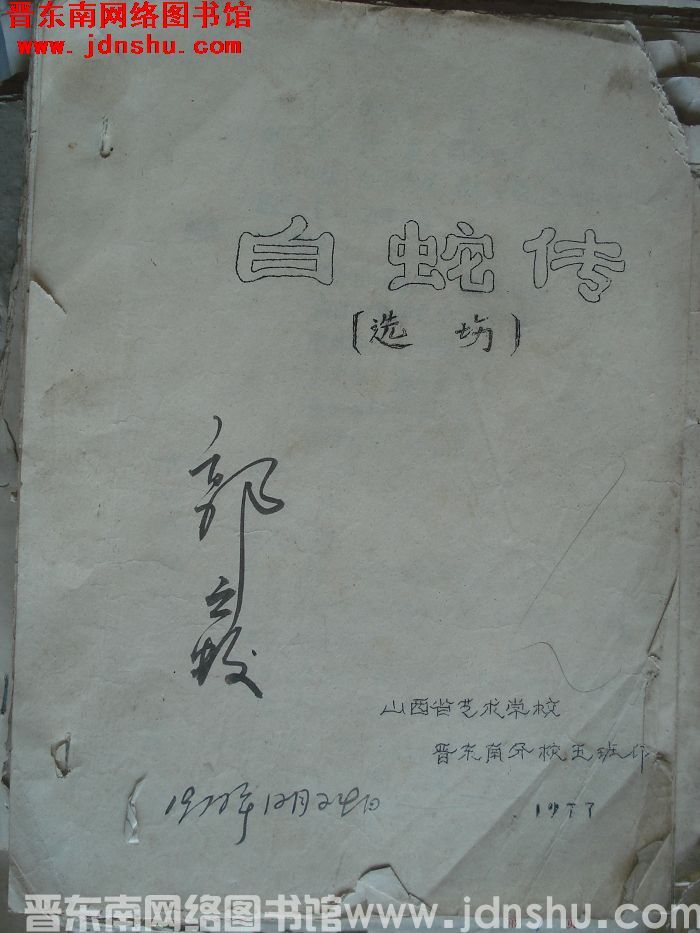 晋东南网络图书馆
www.jdnshu.com
白蛇传
[选场]
郭
山西省艺术学校
晋东南分校五班作
1977年12月24日
1977
晋东南网络图书馆 www.jdnshu.com